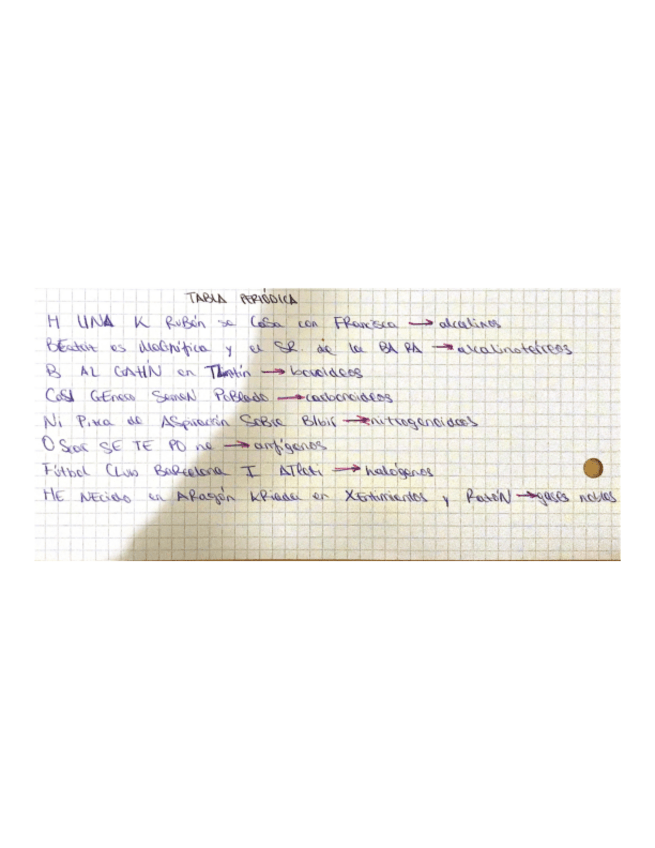 TABLA PERIÓDICA
H LINA K RuBén se CaSa con FRancisca → alcalinos
BEatriz es MaGnífica y el SR. de la BA RA → alcalinotérreos
B AL GaHIN en TLintín → boroideos
CaSI GEnero SemeN PcBlando → carbonoideos
Ni Pizca de ASpiración SoBre BIbis → nitrogenoideos
O Scar SE TE PO ne → anfígenos
Fútbol CLub BaRcelona I ATleti → halógenos
HE NEcido en ARagón KRiada en XEntimientos y RazóN → gases nobles